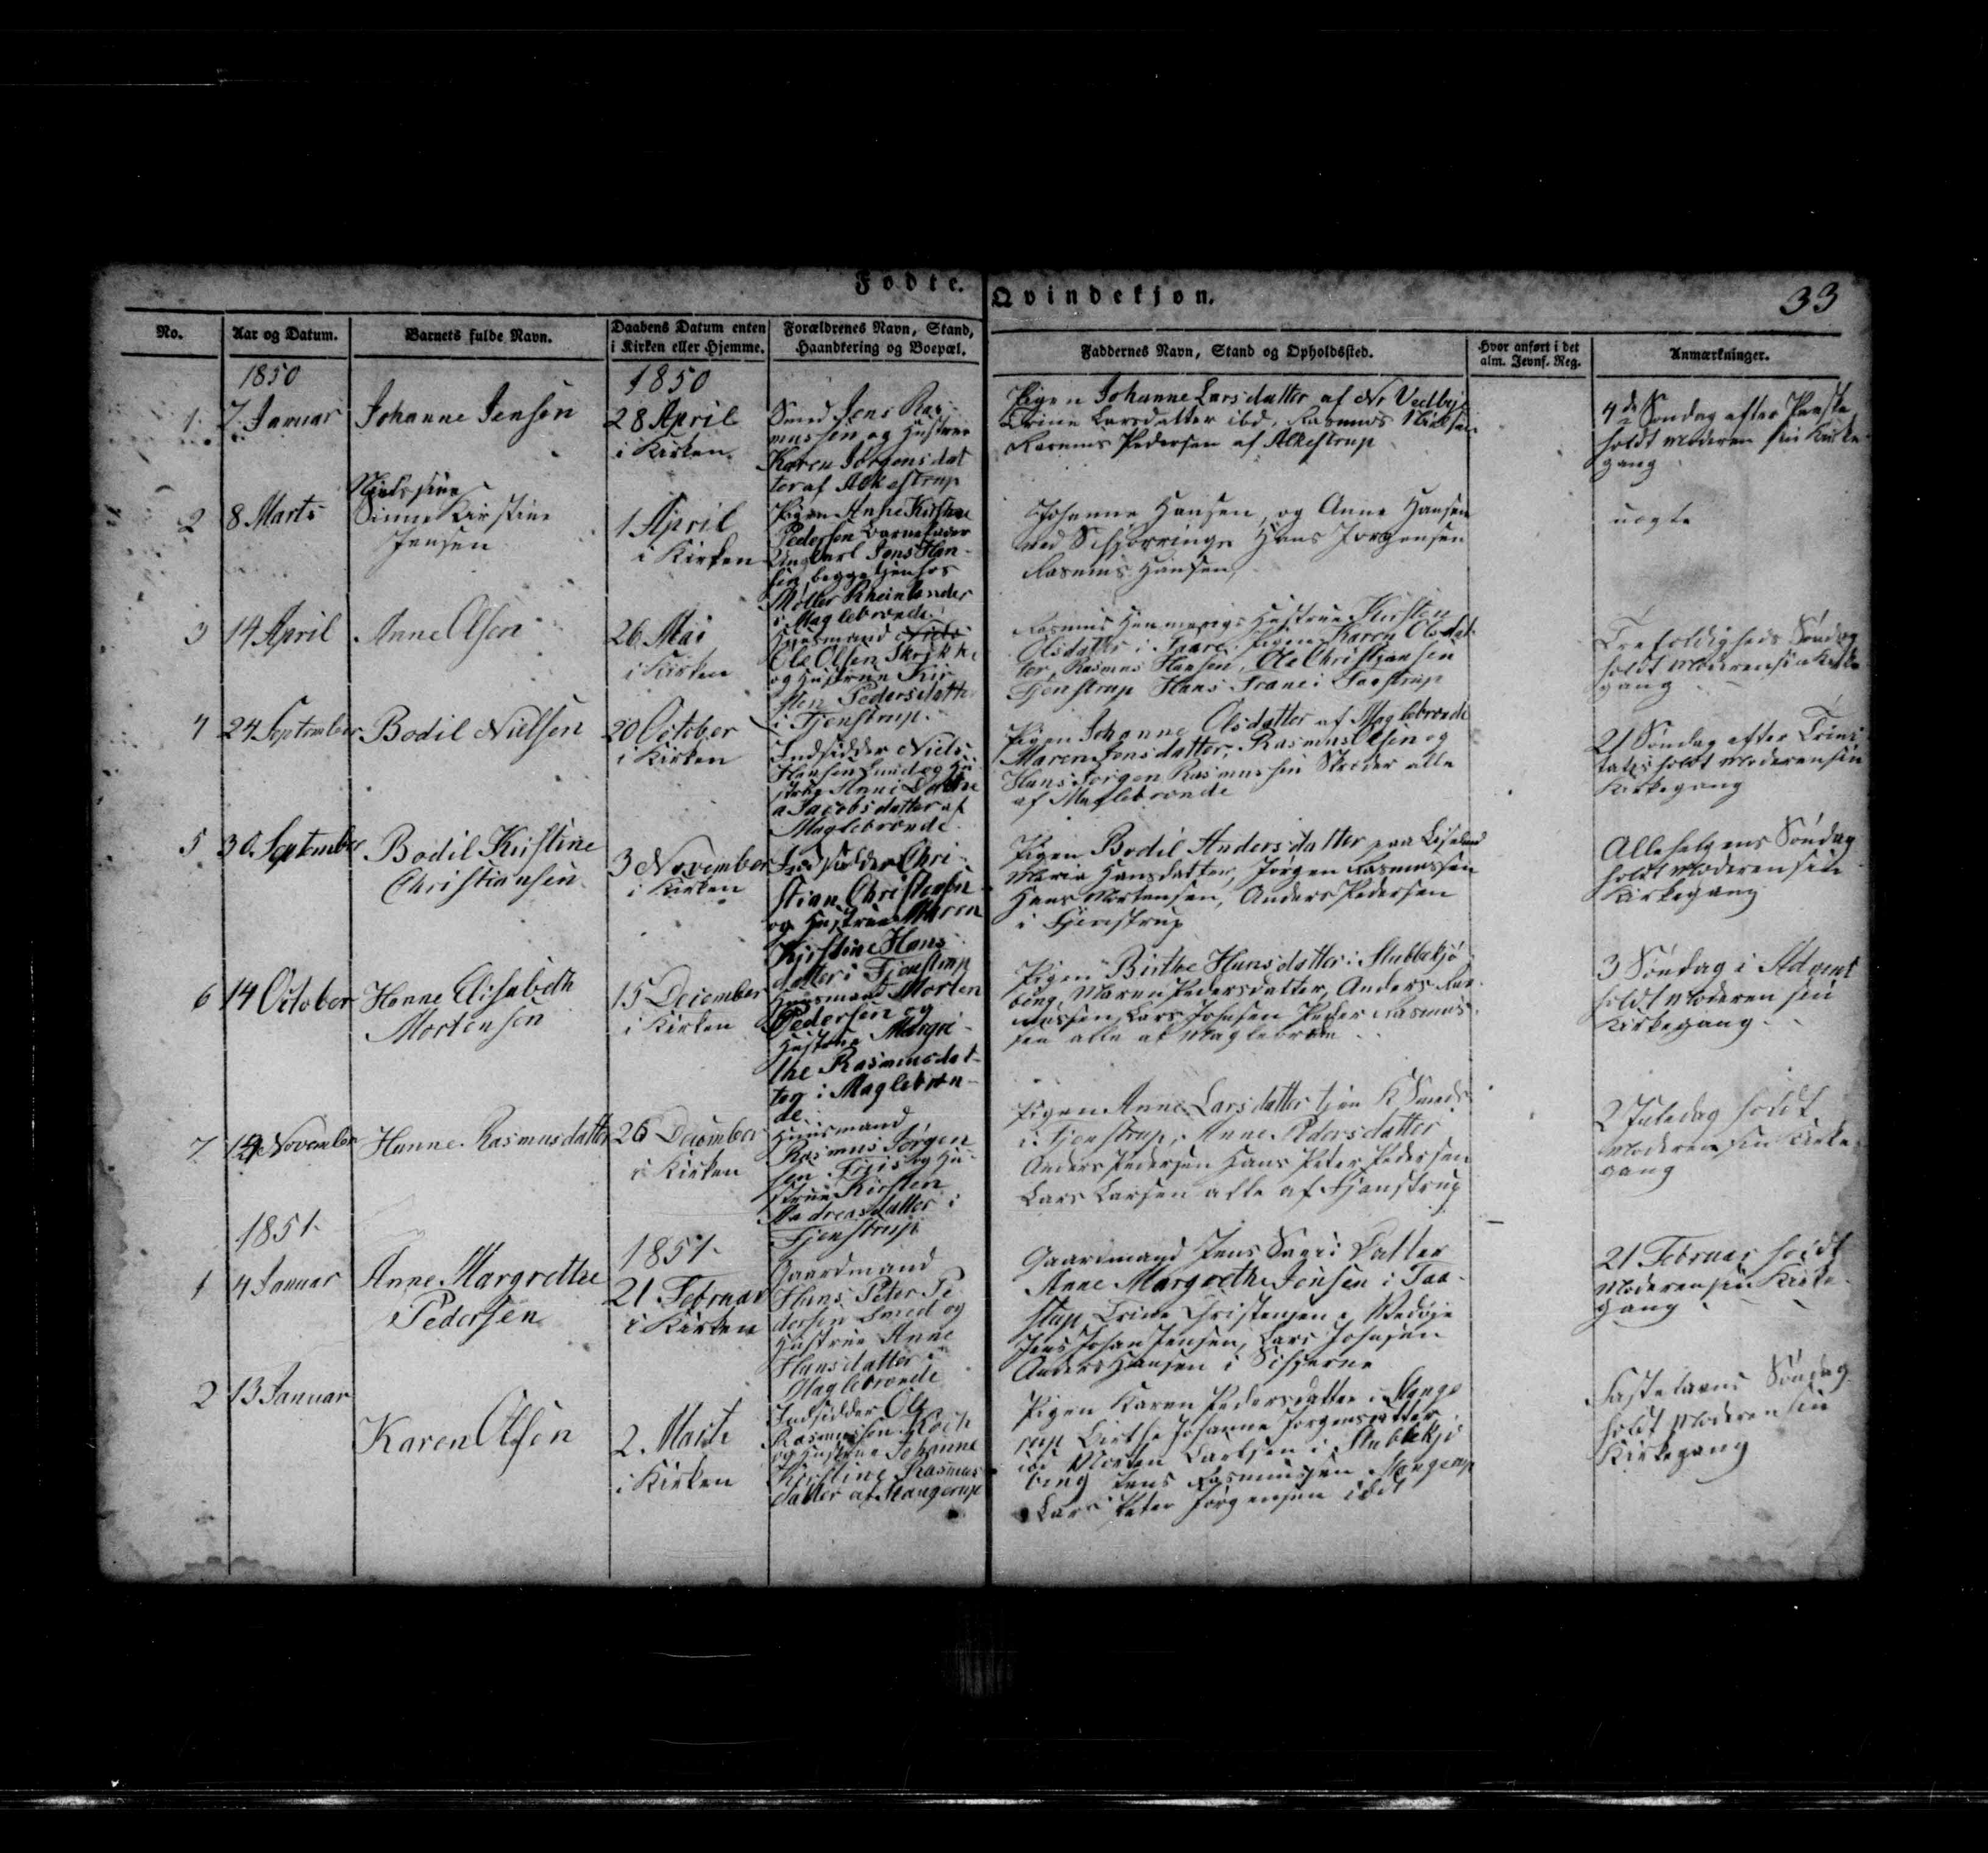 Fødte. Qvindekjøn.
33
No.
Aar og Datum.
Barnets fulde Navn.
Daabens Datum enten
i Kirken eller Hjemme.
Forældrenes Navn, Stand,
Haandtering og Boepæl.
Faddernes Navn, Stand og Opholdssted.
Hvor anført i det
alm. Jevnf. Reg.
Anmærkninger.
1850
1850
1
7. Januar
Johanne Jensen
28 April
i Kirken
Smed Jens Ras-
mussen og Hustrue
Karen Jørgensdat
ter af Alkestrup
Pigen Johanne Larsdatter af Nr Vedbye
Trine Larsdatter ibd. Rasmus Nielsen
Rasmus Pedersen af Alkestrup
4de Søndag efter Paaske
holdt Moderen sin Kirke
gang
2
8 Marts
Nielssine
Sinne Kirstine
Jensen
1 April
i Kirken
Pigen Anne Kirstine
Pedersen Barnefader
Ungkarl Jens Han-
sen begge tjen hos
Møller Rheinlænder
i Maglebrænde
Johanne Hansen, og Anne Hansen
ved Hans Jørgensen
Rasmus Hansen,
uægte
3
14 April
Anne Olsen
26 Mai
i Kirken
Huusmand Niels
Ole Olsen
og Hustrue Kir-
sten Pedersdatter
i Tjenstrup.
Rasmus Hustrue Kirsten
Olsdatter i Pigen Karen Olsdat-
ter, Rasmus Hansen, Ole Christiansen
Tjenstrup Hans i Taastrup
Trefoldigheds Søndag
holdt Moderen sin Kirke
gang
4
24 September
Bodil Nielsen
20 October
i Kirken
Indsidder Niels
Hansen Smed og Hu
strue Anne Dorthe
a Jacobsdatter af
Maglebrænde
Pigen Johanne Olsdatter af Maglebrænde
Maren Jensdatter, Rasmus Olsen og
Hans Jørgen Rasmussen Skræder alle
af Maglebrænde
21 Søndag efter Trini
tatis holdt Moderen sin
Kirkegang
5
30. September
Bodil Kirstine
Christiansen
3 November
i Kirken
Indsidder Chri-
stian Christensen
og Hustrue Maren
Kirstine Hans
datter i Tjenstrup
Pigen Bodil Andersdatter paa Liselund
Maria Hansdatter, Jørgen Rasmussen
Hans Mortensen, Anders Pedersen
i Tjenstrup
Allehelgens Søndag
holdt Moderen sin
Kirkegang
6
14 October
Hanne Elisabeth
Mortensen
15 December
i Kirken
Huusmand Morten
Pedersen og
Hustrue Margre-
the Rasmusdat-
ter i Maglebræn-
de
Pigen Birthe Hansdatter i Stubbekjø-
bing, Maren Pedersdatter, Anders Ras-
mussen, Lars Johnsen Peder Rasmus-
sen alle af Maglebrænde
3 Søndag i Advent
holdt Moderen sin
Kirkegang.
7
14 November
Hanne Rasmusdatter
26 December
i Kirken
Huusmand
Rasmus Jørgen
sen Friis og Hu-
strue Kirsten
Andreasdatter i
Tjenstrup
Pigen Anne Larsdatter tjen K Smeds
i Tjenstrup, Anne Pedersdatter
Anders Pedersen Hans Peter Pedersen
Lars Larsen alle af Tjenstrup
2 Juledag holdt
Moderen sin Kirke-
gang
1851.
1851.
1
4 Januar
Anne Margrethe
Pedersen
21 Februar
i Kirken
Gaardmand
Hans Peter Pe
dersen Smed og
Hustrue Anne
Hansdatter i
Maglebrænde
Gaardmand Jens Datter
Anne Margrethe Jensen i Taa-
strup Trine Christensen
Jens Johan Jensen, Lars Johnsen
Anders Hansen i
21 Februar holdt
Moderen sin Kirke-
gang
2
13 Januar
Karen Olsen
2. Marts
i Kirken
Indsidder Ole
Rasmussen Koch
og Hustrue Johanne
Kirstine Rasmus
datter af Mangerup
Pigen Karen Pedersdatter i Mange
rup Birthe Johanne Jørgensdatter
ibd Morten Carlsen i Stubbekjø
bing Jens Rasmussen Mangerup
Lars Peter Jørgensen ibd
Fastelavns Søndag
holdt Moderen sin
Kirkegang